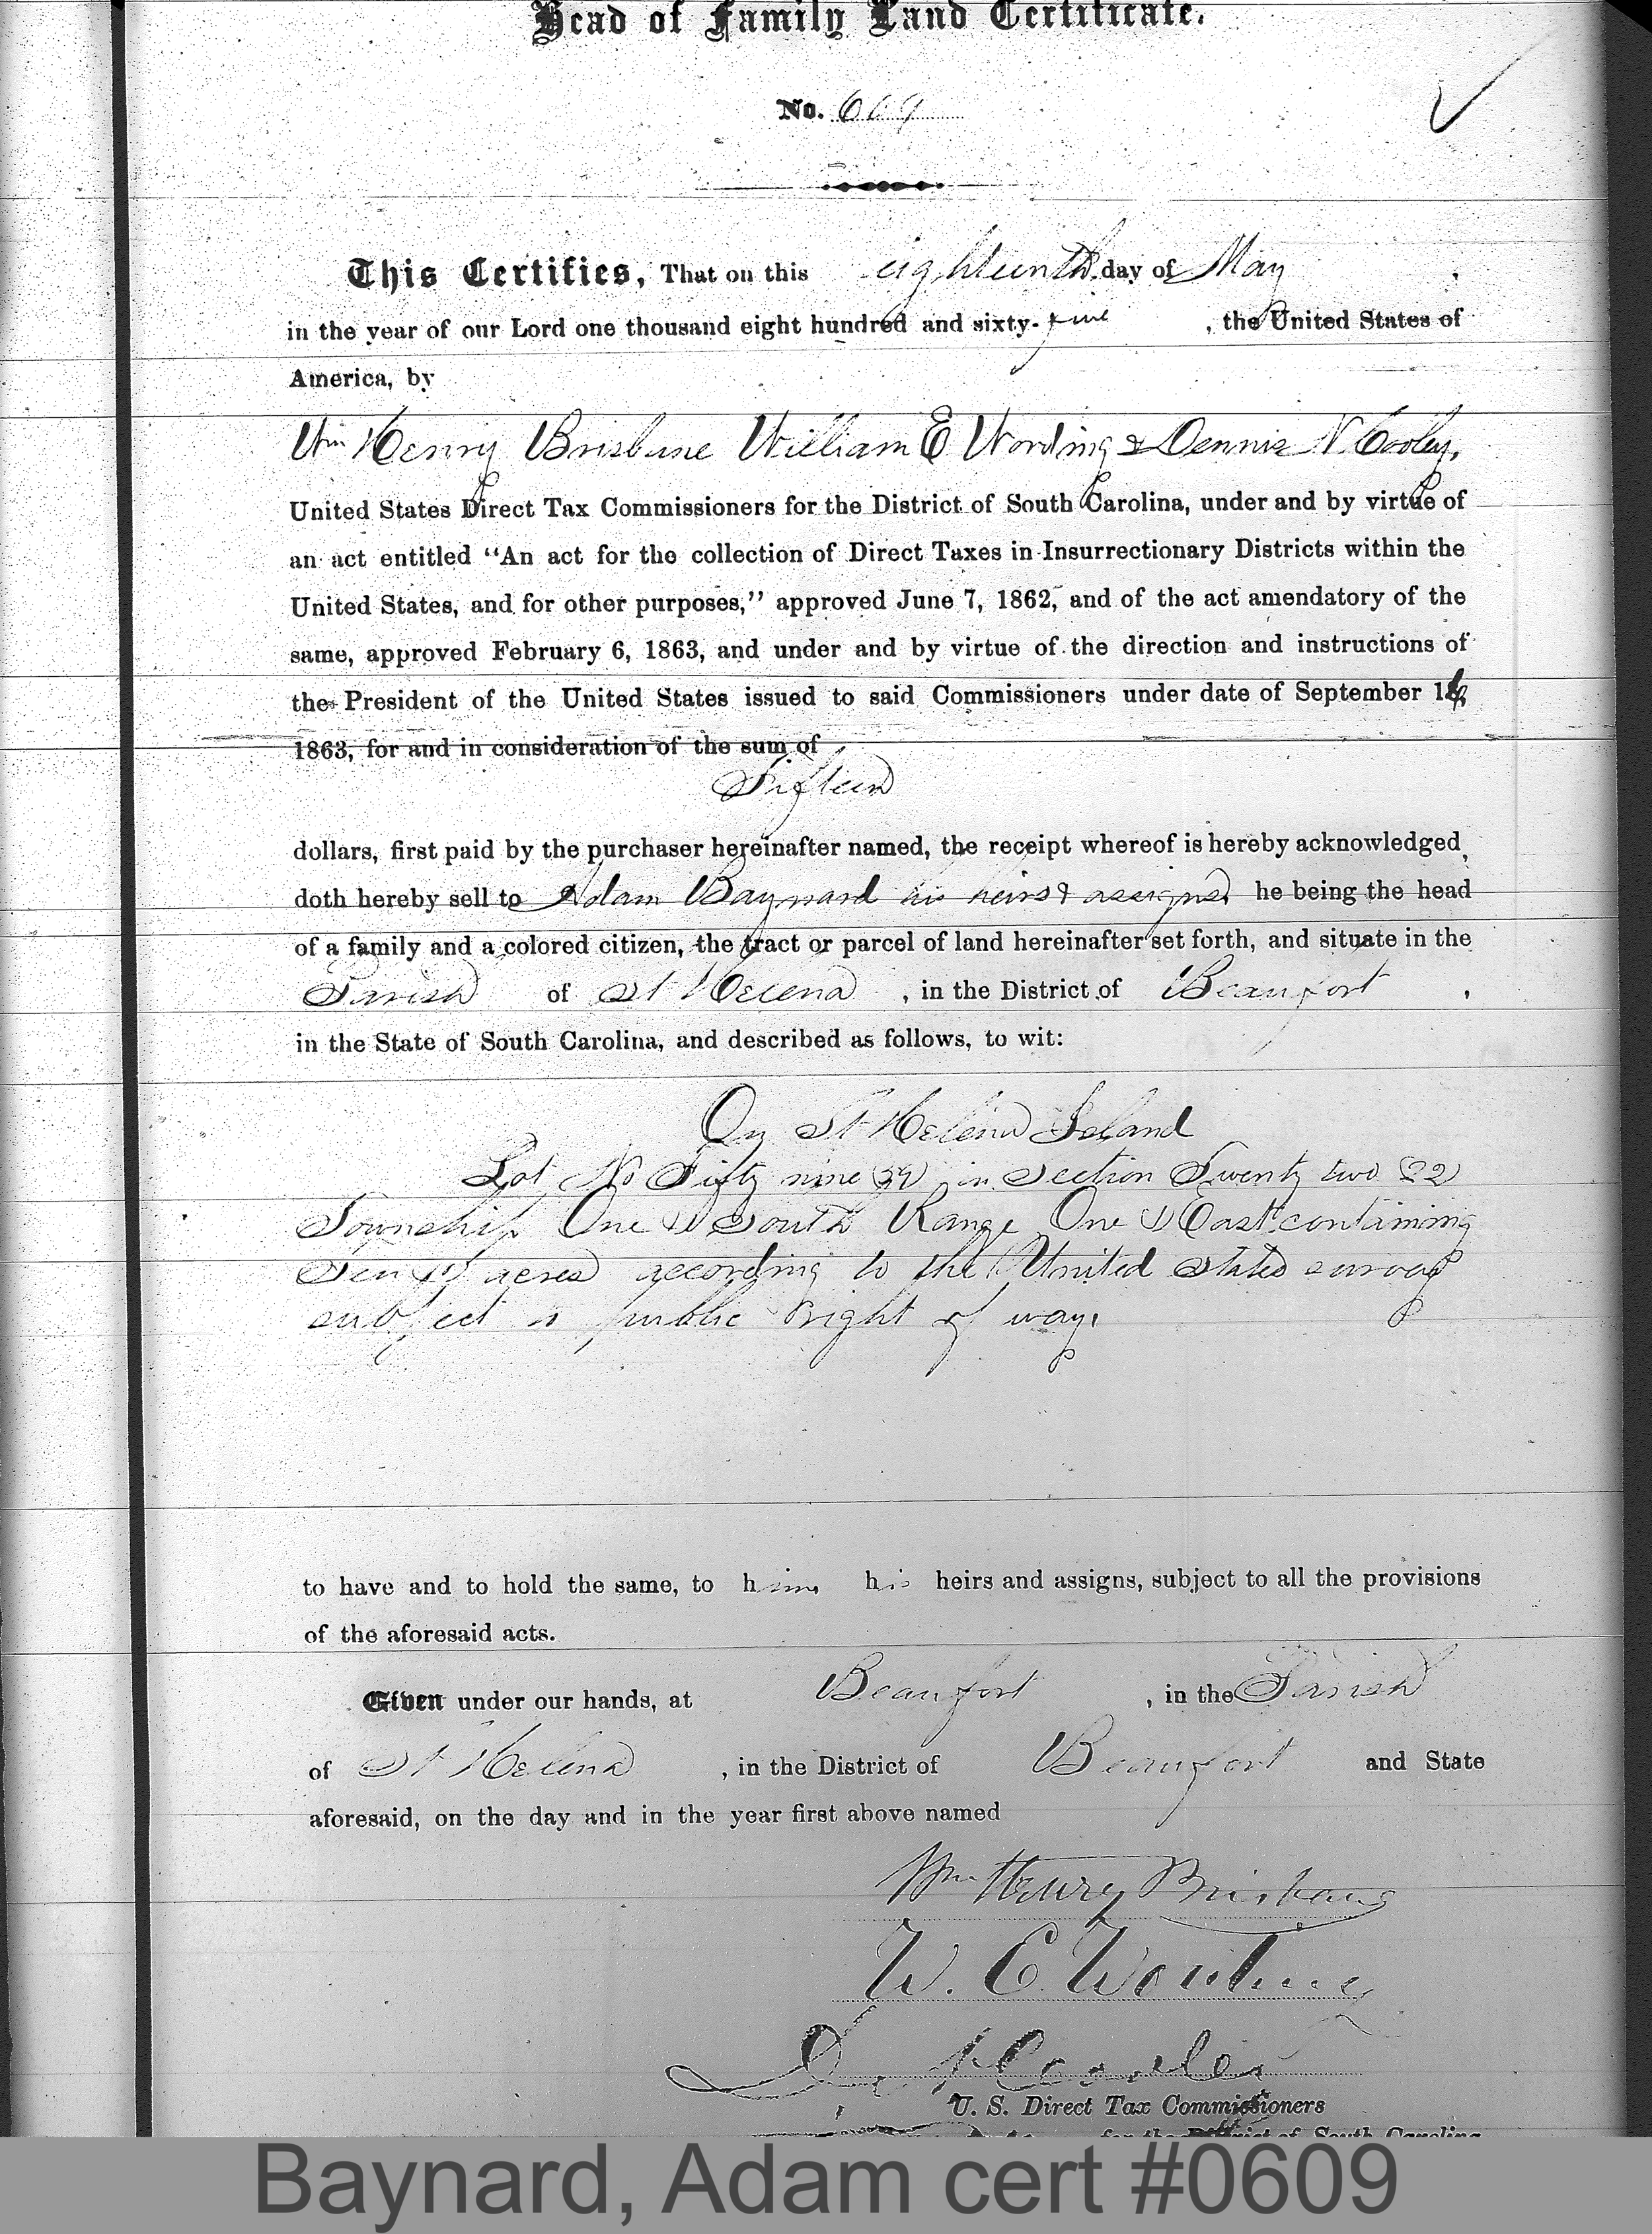 Head of Family Land Certificate.
No. 609
This Certifies, That on this eighteenth day of May,
in the year of our Lord one thousand eight hundred and sixty-five, the United States of
America, by
Wm Henry Brisbane William E Wording & Dennis N. Cooley,
United States Direct Tax Commissioners for the District of South Carolina, under and by virtue of
an act entitled “An act for the collection of Direct Taxes in Insurrectionary Districts within the
United States, and for other purposes,” approved June 7, 1862, and of the act amendatory of the
same, approved February 6, 1863, and under and by virtue of the direction and instructions of
the President of the United States issued to said Commissioners under date of September 16,
1863, for and in consideration of the sum of
Fifteen
dollars, first paid by the purchaser hereinafter named, the receipt whereof is hereby acknowledged,
doth hereby sell to Adam Baynard his heirs & assigns he being the head
of a family and a colored citizen, the tract or parcel of land hereinafter set forth, and situate in the
Parish of St Helena, in the District of Beaufort,
in the State of South Carolina, and described as follows, to wit:
On St Helena Island
Lot No Fifty nine (59) in Section Twenty two (22)
Township One (1) South Range One (1) East containing
Ten (10) acres according to the United States survey
subject to public right of way.
to have and to hold the same, to him, his heirs and assigns, subject to all the provisions
of the aforesaid acts.
Given under our hands, at Beaufort, in the Parish
of St Helena, in the District of Beaufort and State
aforesaid, on the day and in the year first above named
Wm. Henry Brisbane
W. E. Wording
D. N. Cooley
U. S. Direct Tax Commissioners
for the District of South Carolina
Baynard, Adam cert #0609